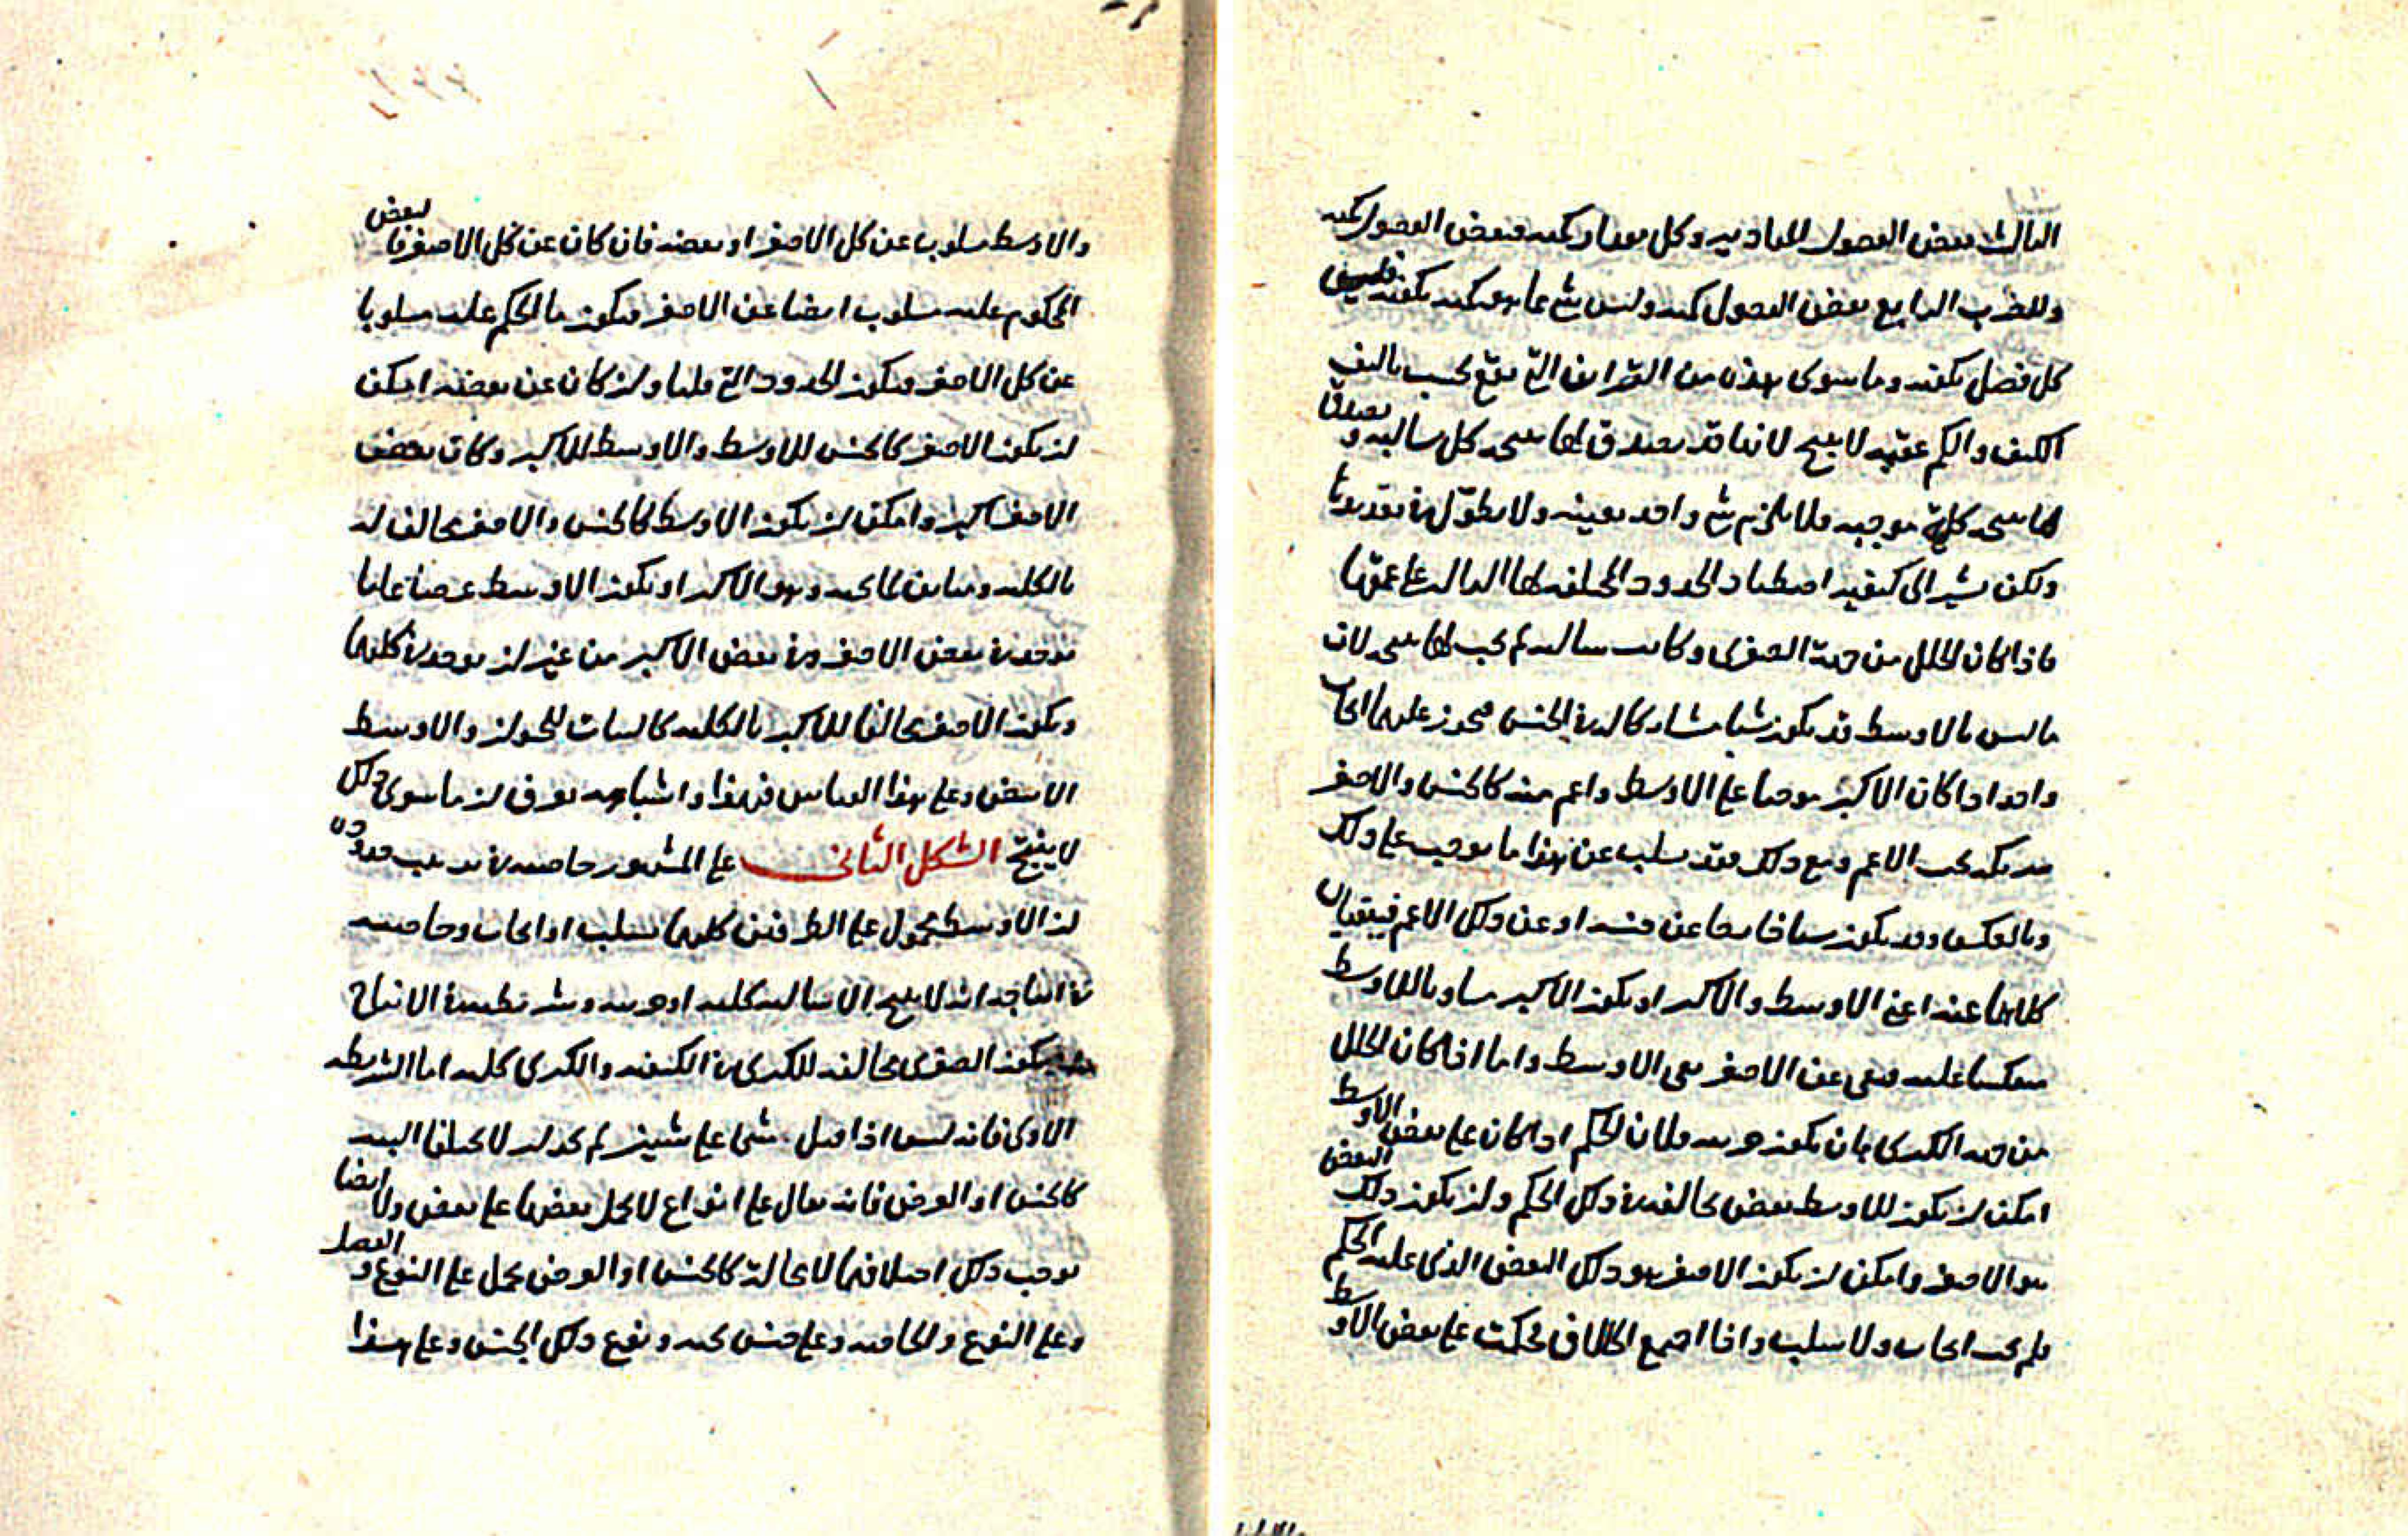 الثالث بعض الفصول للمادية وكل مادة كمية فبعض الفصول كمية
وللضرب الرابع بعض الفصول كمية وليس شئ مما هو كمية بكيفية فليس
كل فصل بكيفية وما سوى هذه من القراين التي تقع بحسب تاليف
الكيف والكم عقيمة لا ينتج لانها قد يصدق لها نتيجة كلية سالبة و
لها نتيجة كلية موجبة فلا يلزم شئ واحد بعينه ولا نطول في تعديدها
ولكن نشير الى كيفية اصطياد الحدود المختلفة لها الدالة على عقمها
فاذا كان الخلل من جهة الصغرى وكانت سالبة لم يجب لها نتيجة لان
ما ليس بالاوسط قد يكون شيئا مشاركا له في الجنس فيجوز عليهما ايجاب
واحد اذا كان الاكبر موجبا على الاوسط واعم منه كالجنس والاصغر
مشاركه تحت الاعم ومع ذلك فقد سلب عن هذا ما يوجب على ذلك
وبالعكس وقد يكون شيئا خارجا عن جنسه او عن ذلك الاعم فينتفيان
كلاهما عنه اعنى الاوسط والاكبر او يكون الاكبر مساويا للاوسط
منعكسا عليه فينفى عن الاصغر نفى الاوسط واما اذا كان الخلل
من جهة الكبرى بان يكون جزئية فلان الحكم اذا كان على بعض الاوسط
امكن ان يكون للاوسط بعض يخالفه في ذلك الحكم وان يكون ذلك البعض
هو الاصغر وامكن ان يكون الاصغر هو ذلك البعض الذى عليه الحكم
فلم يجب ايجاب ولا سلب واذا اجتمع الخلاف فحكمت على بعض الاوسط
والاوسط مسلوب عن كل الاصغر او بعضه فان كان عن كل الاصغر فالبعض
المحكوم عليه مسلوب ايضا عن الاصغر فيكون ما الحكم عليه مسلوبا
عن كل الاصغر فيكون الحدود التي قلنا وان كان عن بعضه امكن
ان يكون الاصغر كالجنس للاوسط والاوسط للاكبر وكان بعض
الاصغر اكبر وامكن ان يكون الاوسط كالجنس والاصغر مخالف له
بالكلية ومباين لما تحته وهو الاكبر او يكون الاوسط عرضا عاما
يوجد في بعض الاصغر وفي بعض الاكبر من غير ان يوجد في كليهما
ويكون الاصغر مخالفا للاكبر بالكلية كالنبات للحيوان والاوسط
الابيض وعلى هذا القياس فهذا واشباهه يعرف ان ما سوى ذلك
لا ينتج الشكل الثانى على المشهور خاصيته في ترتيب حدوده
ان الاوسط محمول على الطرفين كليهما بسلب او ايجاب وخاصيته
في انتاجه انه لا ينتج الا سالبة كلية او جزئية وشريطته في الانتاج
ان يكون الصغرى مخالفة للكبرى في الكيفية والكبرى كلية اما الشريطة
الاولى فانه ليس اذا قيل شئ على شيئين لم يجز ان لا يختلفا البتة
كالجنس او العرض فانه يقال على انواع لا يحمل بعضها على بعض ولا ايضا
يوجب ذلك اختلافهما لا محالة كالجنس او العرض يحمل على النوع والفصل
وعلى النوع والخاصة وعلى جنس تحته ونوع ذلك الجنس وعلى هذا